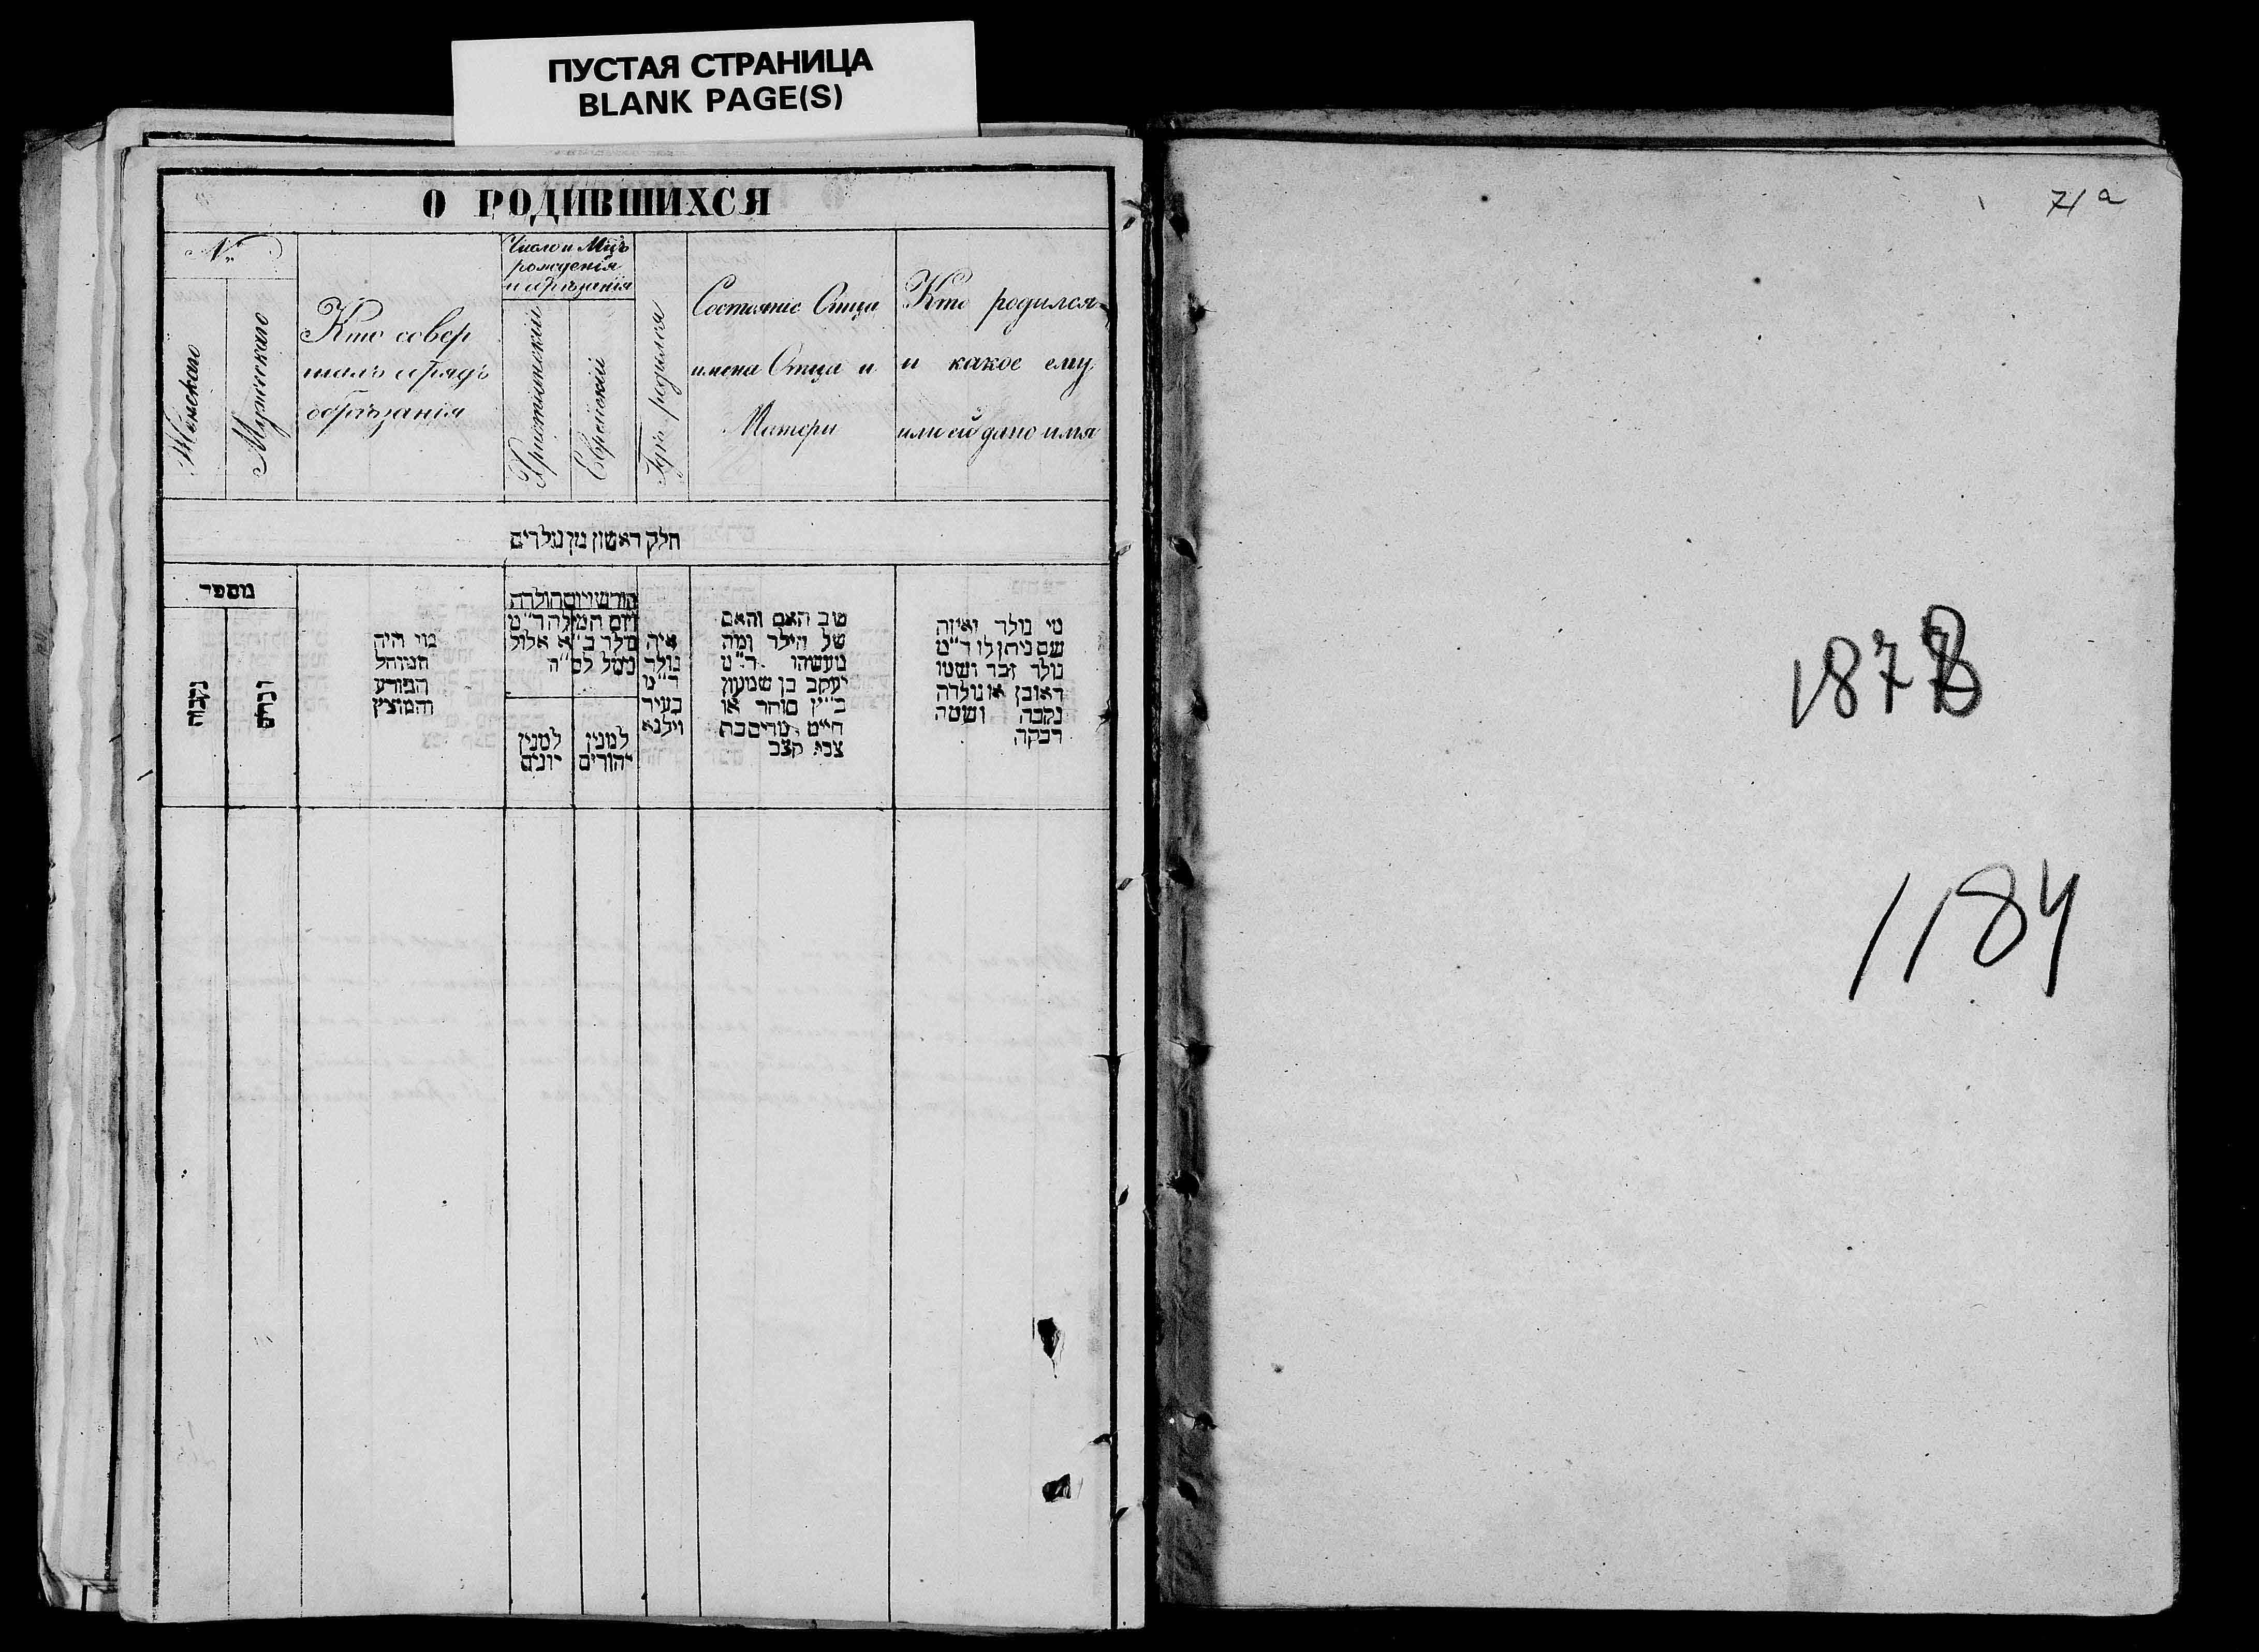 ПУСТАЯ СТРАНИЦА
BLANK PAGE(S)
О РОДИВШИХСЯ
№
Женскаго
Мужескаго
Кто совер
шалъ обрядъ
обрѣзанія
Число и Мцъ
рожденія
и обрѣзанія
Христіанскій
Еврейскій
Гдѣ родился
Состояніе Отца
имена Отца и
Матери
Кто родился
и какое ему
или ей дано имя
חלק ראשון מן נולדים
מספר
נקבה
זכרים
מי היה
המוהל
הפורע
והמוצץ
חודש ויום הולדה
ויום המילה ד״מ
נולד כ״א אלול
נימל לס״ה
למנין
יונים
למנין
יהודים
איה
נולד
ד״מ
בעיר
וילנא
טוב האב והאם
של הילד ומה
מעשהו ד״מ
יעקב בן שמעון
כ״ץ סוחר או
חייט מרים בת
צבי קצב
מי נולד ואיזה
שם ניתן לו ד״מ
נולד זכר ושמו
ראובן או נולדה
נקבה ושמה
רבקה
71a
1878
1184